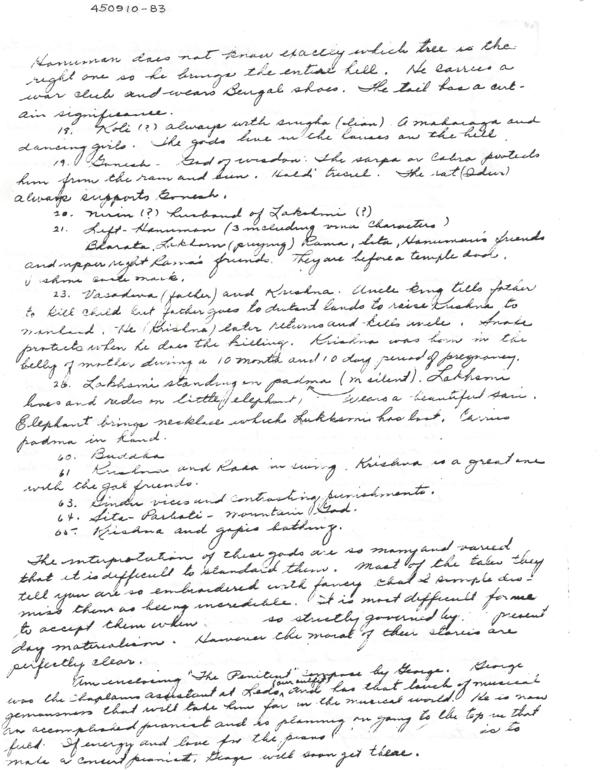 450910-83
Hanuman does not know exactly which tree is the
right one so he brings the entire hill. He carries a
war club and wears Bengal shoes. The tail has a cert-
ain significance.
18. Koli (?) always with singha (lion). A maharaga and
dancing girls. The gods live in the houses on the hill
19. Gonesh - God of wisdom. The sarpa or Cobra protects
him from the rain and sun. Holds trisul. The rat (Idur)
always supports Gonesh.
20. Nirin (?) husband of Lakshmi (?)
21. Left - Hanuman (3 including Characters)
Bharata, Lukhom (praying) Rama, Sita, Hanuman's friends
and upper right Rama's friends. They are before a temple door.
caste mark.
23. Vasadeva (father) and Krishna. Uncle King tells father
to kill child but father goes to distant lands to raise Krishna to
manhood. He (Krishna) later returns and kills uncle. Snake
protects when he does the killing. Krishna was born in the
belly of mother during a 10 month and 10 day period of pregnancy.
26. Lakhsmi standing on padma (m silent). Lakhsmi
lives and rides on little elephant, wears a beautiful sari.
Elephant brings necklace which Lukksmi has lost. Carries
padma in hand.
60. Buddha
61 Krishna and Rada in swing. Krishna is a great one
with the gal friends.
63. Hindu vices and contrasting punishments.
64. Sita - Parbati - Mountain God.
65. Krishna and gopis bathing.
The interpretation of these gods are so many and varied
that it is difficult to standard them. Most of the tales they
tell you are so embroidered with fancy that I simple dis-
miss them as being incredible. It is most difficult for me
to accept them when so strictly governed by present
day materialism. However the moral of their stories are
perfectly clear.
Am enclosing "The Penitent" by George. George
was the chaplains assistant at Ledo, and has that touch of musical
geniousness that will take him far in the musical world. He is now
an accomplished pianist and is planning on going to the top in that
field. If energy and love for the piano is to
make a concert pianist, George will soon get there.